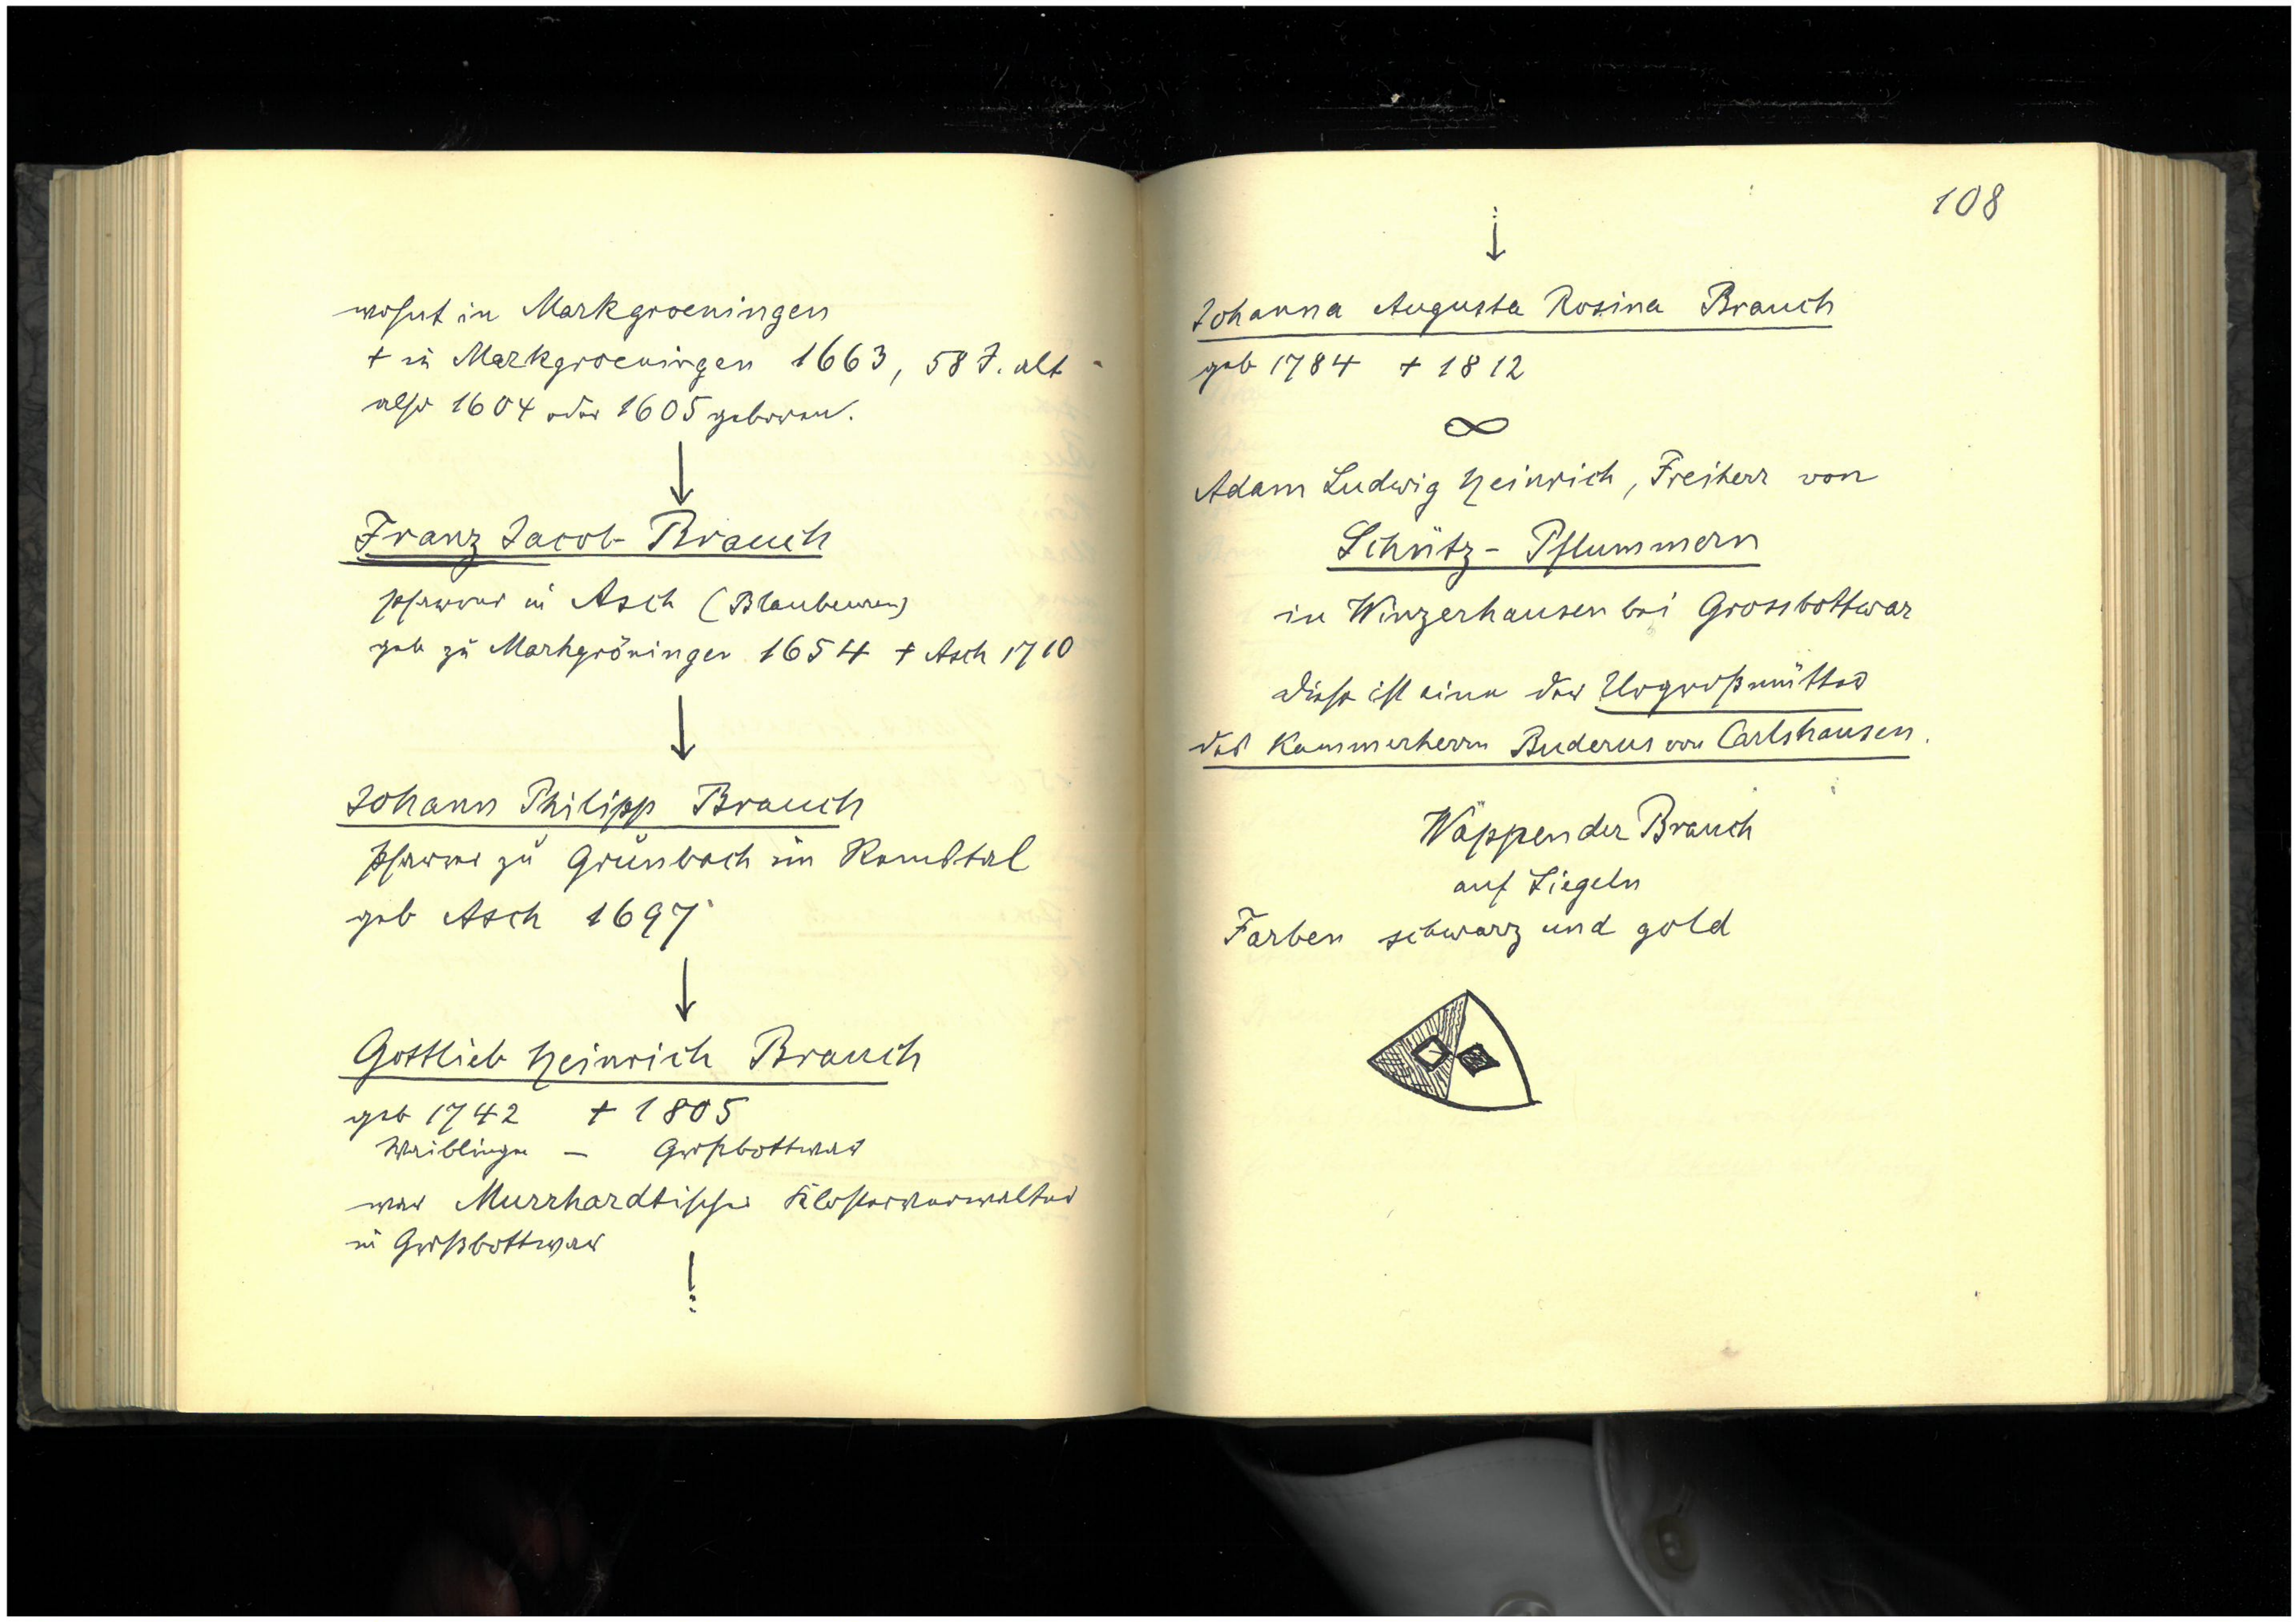 wohnt in Markgroeningen
+ in Markgroeningen 1663, 58 J. alt
also 1604 oder 1605 geboren.
Franz Jacob Brauch
Pfarrer in Asch (Blaubeuren)
geb zu Markgröningen 1654 + Asch 1710
Johann Philipp Brauch
Pfarrer zu Grünbach im Remstal
geb Asch 1697
Gottlieb Heinrich Brauch
geb 1742 + 1805
Waiblingen — Großbottwar
war Murrhardtischer Klosterverwalter
in Großbottwar
108
Johanna Augusta Rosina Brauch
geb 1784 + 1812
∞
Adam Ludwig Heinrich, Freiherr von
Schütz - Pflummern
in Winzerhausen bei Grossbottwar
diese ist eine der Urgroßmütter
des Kammerherrn Buderus von Carlshausen.
Wappen der Brauch
auf Siegeln
Farben schwarz und gold